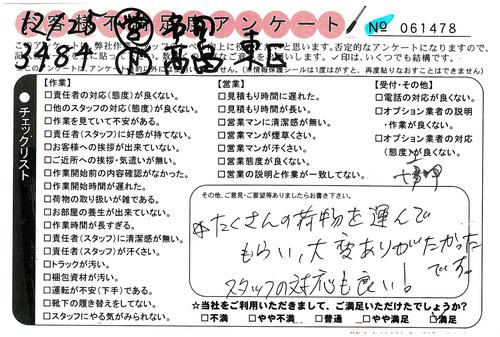 お客様不満足度アンケート
No 061478
12/25
【作業】
□責任者の対応(態度)が良くない。
□他のスタッフの対応(態度)が良くない。
□作業を見ていて不安がある。
□責任者(スタッフ)に好感が持てない。
□お客様への挨拶が出来ていない。
□ご近所への挨拶・気遣いが無い。
□作業開始前の内容確認がなかった。
□作業開始時間が遅れた。
□荷物の取り扱いが雑である。
□お部屋の養生が出来ていない。
□作業時間が長すぎる。
□責任者(スタッフ)に清潔感が無い。
□責任者(スタッフ)が汗くさい。
□トラックが汚い。
□梱包資材が汚い。
□運転が不安(下手)である。
□靴下の履き替えをしてない。
□スタッフにやる気がみられない。
【営業】
□見積もり時間に遅れた。
□見積もり時間が長い。
□営業マンに清潔感が無い。
□営業マンが煙草くさい。
□営業マンが汗くさい。
□営業態度が良くない。
□営業の説明と作業が一致してない。
【受付・その他】
□電話の対応が良くない。
□オプション業者の説明
・作業が良くない。
□オプション業者の対応
(態度)が良くない。
チェックリスト
その他、ご意見・ご要望等ありましたらお書き下さい。
たくさんの荷物を運んで
もらい、大変ありがたかった
です。
スタッフの対応も良い!
☆当社をご利用いただきまして、ご満足いただけたでしょうか?
□不満 □やや不満 □普通 □やや満足 □満足